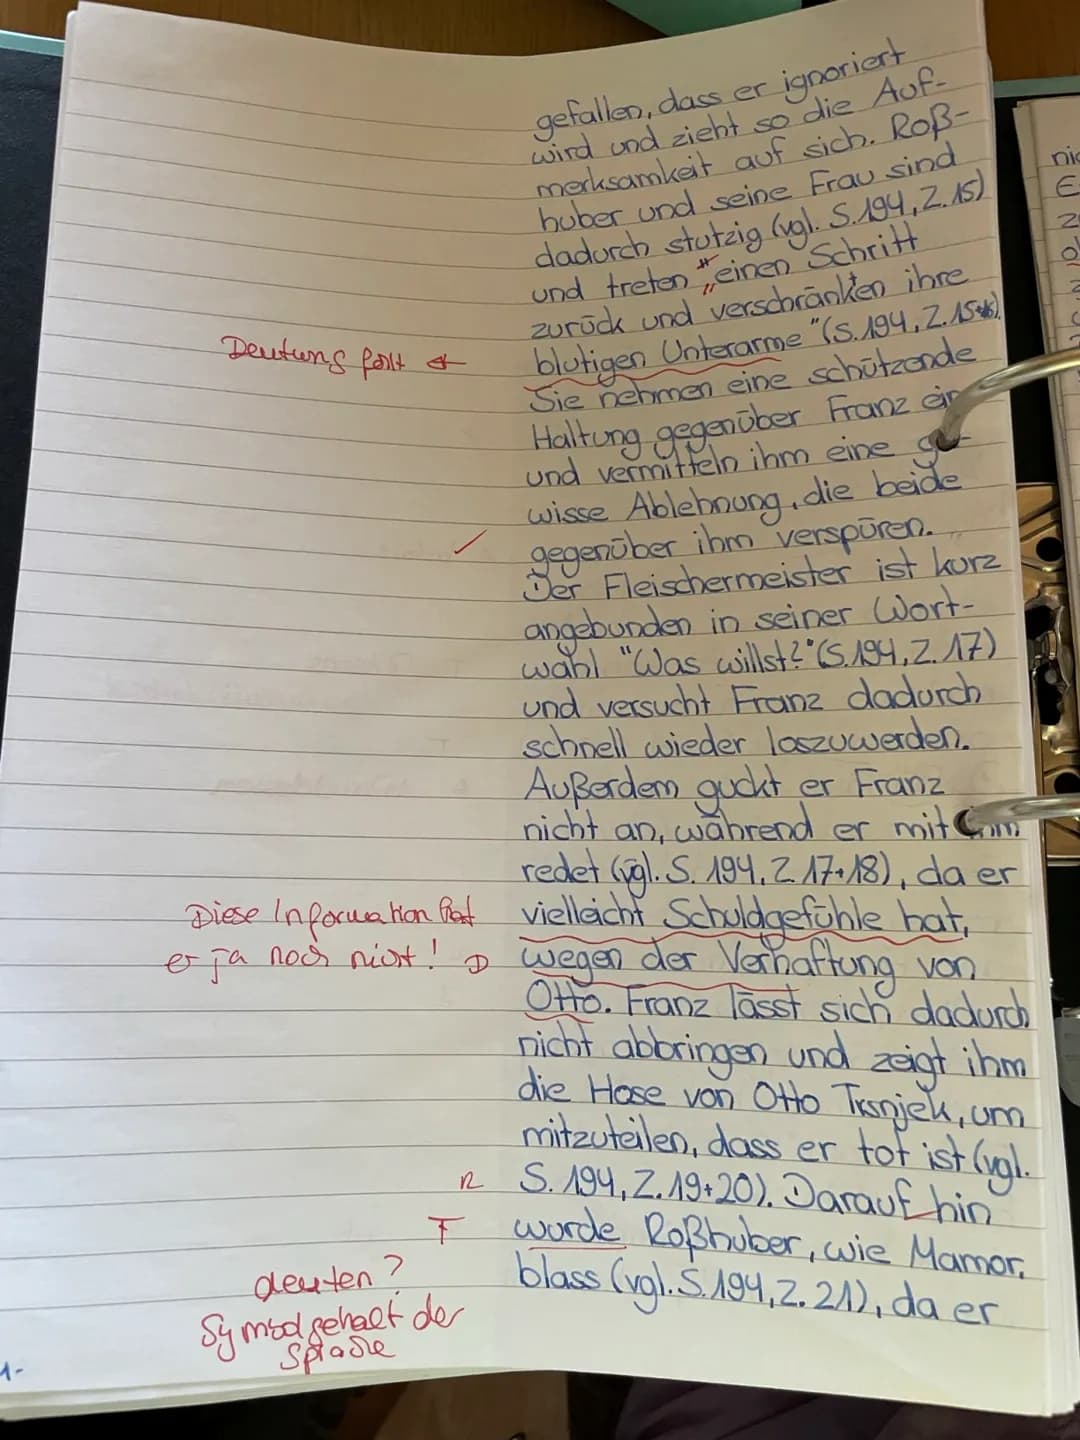 gefallen, dass er ignoriert
wird und zieht so die Auf-
merksamkeit auf sich. Roß-
huber und seine Frau sind
dadurch stutzig (vgl. S.194, Z.15)
und treten "einen Schritt
zurück und verschränkten ihre
Deutung fehlt blutigen Unterarme" (S.194, Z.15+16).
Sie nehmen eine schützende
Haltung gegenüber Franz ein
und vermitteln ihm eine ge-
wisse Ablehnung, die beide
gegenüber ihm verspüren.
Der Fleischermeister ist kurz
angebunden in seiner Wort-
wahl "Was willst?" (S.194, Z.17)
und versucht Franz dadurch
schnell wieder loszuwerden.
Außerdem guckt er Franz
nicht an, während er mit ihm
redet (vgl. S. 194, Z. 17+18), da er
Diese Information hat vielleicht Schuldgefühle hat,
er ja noch nicht! wegen der Verhaftung von
Otto. Franz lässt sich dadurch
nicht abbringen und zeigt ihm
die Hose von Otto Trsnjek, um
mitzuteilen, dass er tot ist (vgl.
R S. 194, Z. 19+20). Darauf hin
T wurde Roßhuber, wie Mamor,
deuten? blass (vgl. S. 194, Z. 21), da er
Symbolgehalt der
Sprache
1-